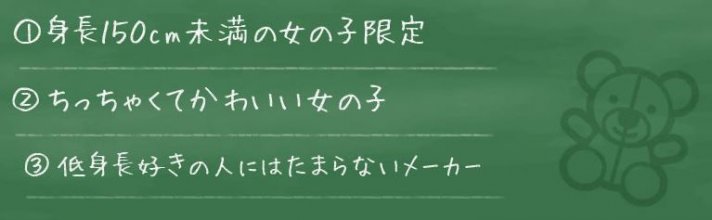 ①身長150cm未満の女の子限定
②ちっちゃくてかわいい女の子
③低身長好きの人にはたまらないメーカー